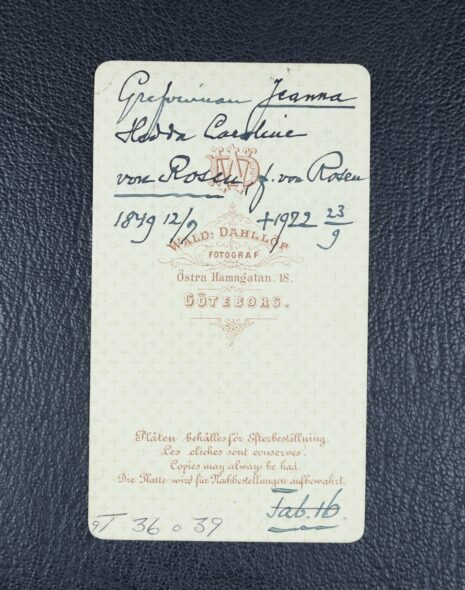 Grefvinnan Jeanna
Hedda Caroline
von Rosen f. von Rosen
WD
1849 12/9 +1922 23/9
WALD: DAHLLÖF
FOTOGRAF
Östra Hamngatan. 18.
GÖTEBORG.
Plåten behålles för Efterbeställning.
Les cliches sont conservés.
Copies may always be had.
Die Platte wird für Nachbestellungen aufbewahrt.
Tab. 16.
36 o 39